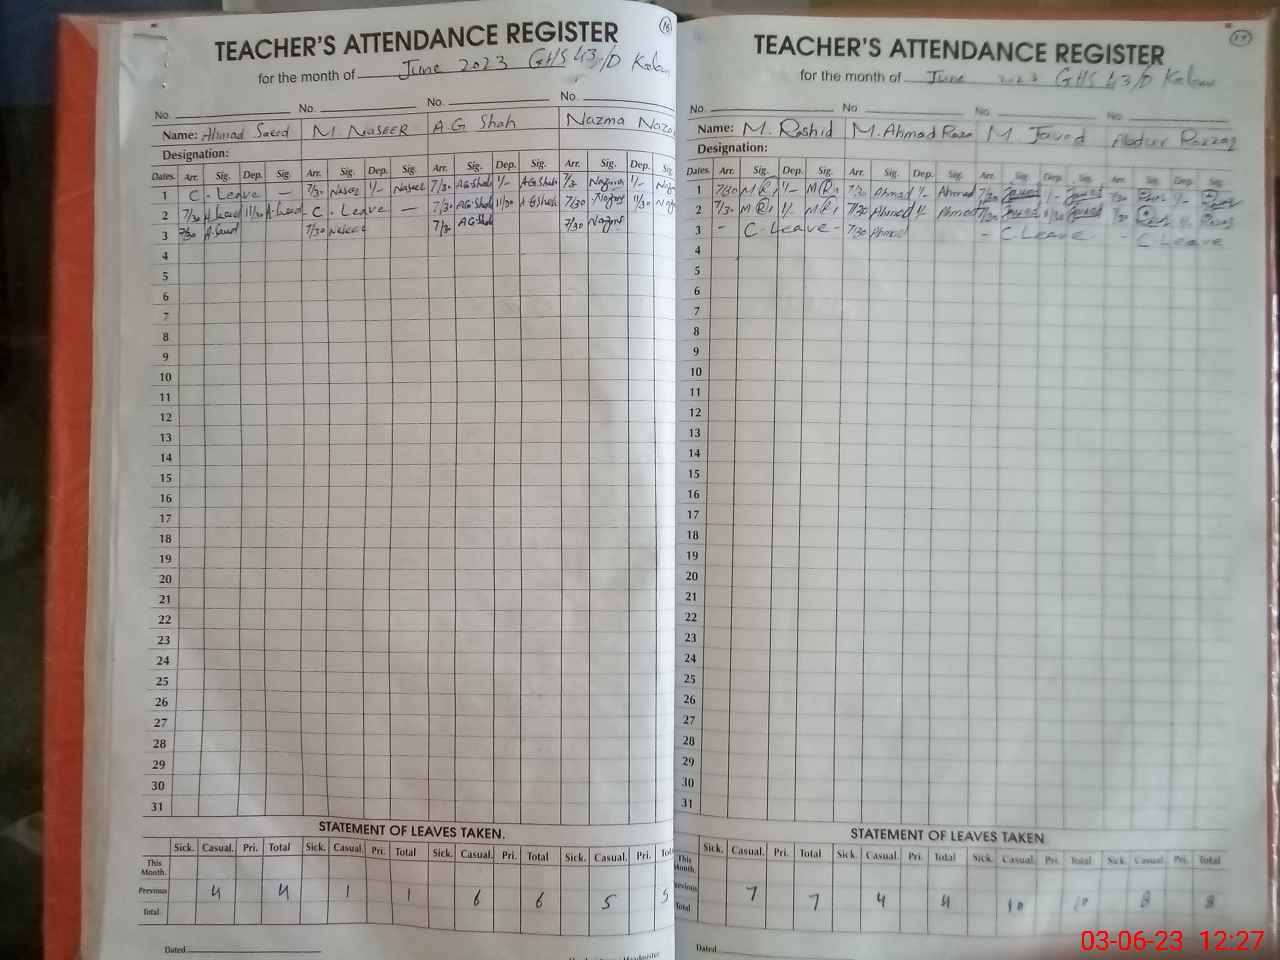 16
TEACHER'S ATTENDANCE REGISTER
for the month of June 2023 GHS 43/D Kalan
No. No. No. No.
Name: Ahmad Saeed M. NASEER A.G Shah Nazma
Designation:
Dates. Arr. Sig. Dep. Sig. Arr. Sig. Dep. Sig. Arr. Sig. Dep. Sig. Arr. Sig. Dep. Sig.
1 C. Leave — 7/30 Naseer 1/- Naseer 7/30 AG Shah 1/- AG Shah 7/30 1/-
2 7/30 A.Saeed 11/30 A.Saeed C. Leave — 7/30 AG Shah 11/30 AG Shah 7/30 11/30
3 7/30 A.Saeed 7/30 Naseer 7/30 AG Shah 7/30
4
5
6
7
8
9
10
11
12
13
14
15
16
17
18
19
20
21
22
23
24
25
26
27
28
29
30
31
STATEMENT OF LEAVES TAKEN.
Sick. Casual. Pri. Total Sick. Casual. Pri. Total Sick. Casual. Pri. Total Sick. Casual. Pri.
This
Month.
Previous 4 4 1 1 6 6 5 5
Total.
Dated
17
TEACHER'S ATTENDANCE REGISTER
for the month of June 2023 GHS 43/D Kalan
No. No No. No.
Name: M. Rashid M. Ahmad Raza M Javed Abdur Razzaq
Designation:
Dates. Arr. Sig. Dep. Sig. Arr. Sig. Dep. Sig. Arr. Sig. Dep. Sig. Arr. Sig Dep. Sig.
1 7/30 MR 1/- MR 7/30 Ahmad 1/- Ahmad 7/30 Javed 1/- Javed 7/30 1/-
2 7/30 MR 1/- MR 7/30 Ahmad 1/- Ahmad 7/30 Javed 11/30 Javed 7/30 1/-
3 - C. Leave - 7/30 Ahmad - C. Leave - - C Leave
4
5
6
7
8
9
10
11
12
13
14
15
16
17
18
19
20
21
22
23
24
25
26
27
28
29
30
31
STATEMENT OF LEAVES TAKEN
Sick. Casual. Pri. Total Sick. Casual. Pri. Total Sick. Casual. Pri. Total Sick. Casual. Pri. Total
This
Month.
Previous 7 7 4 4 10 10 8 8
Total
Dated
03-06-23 12:27